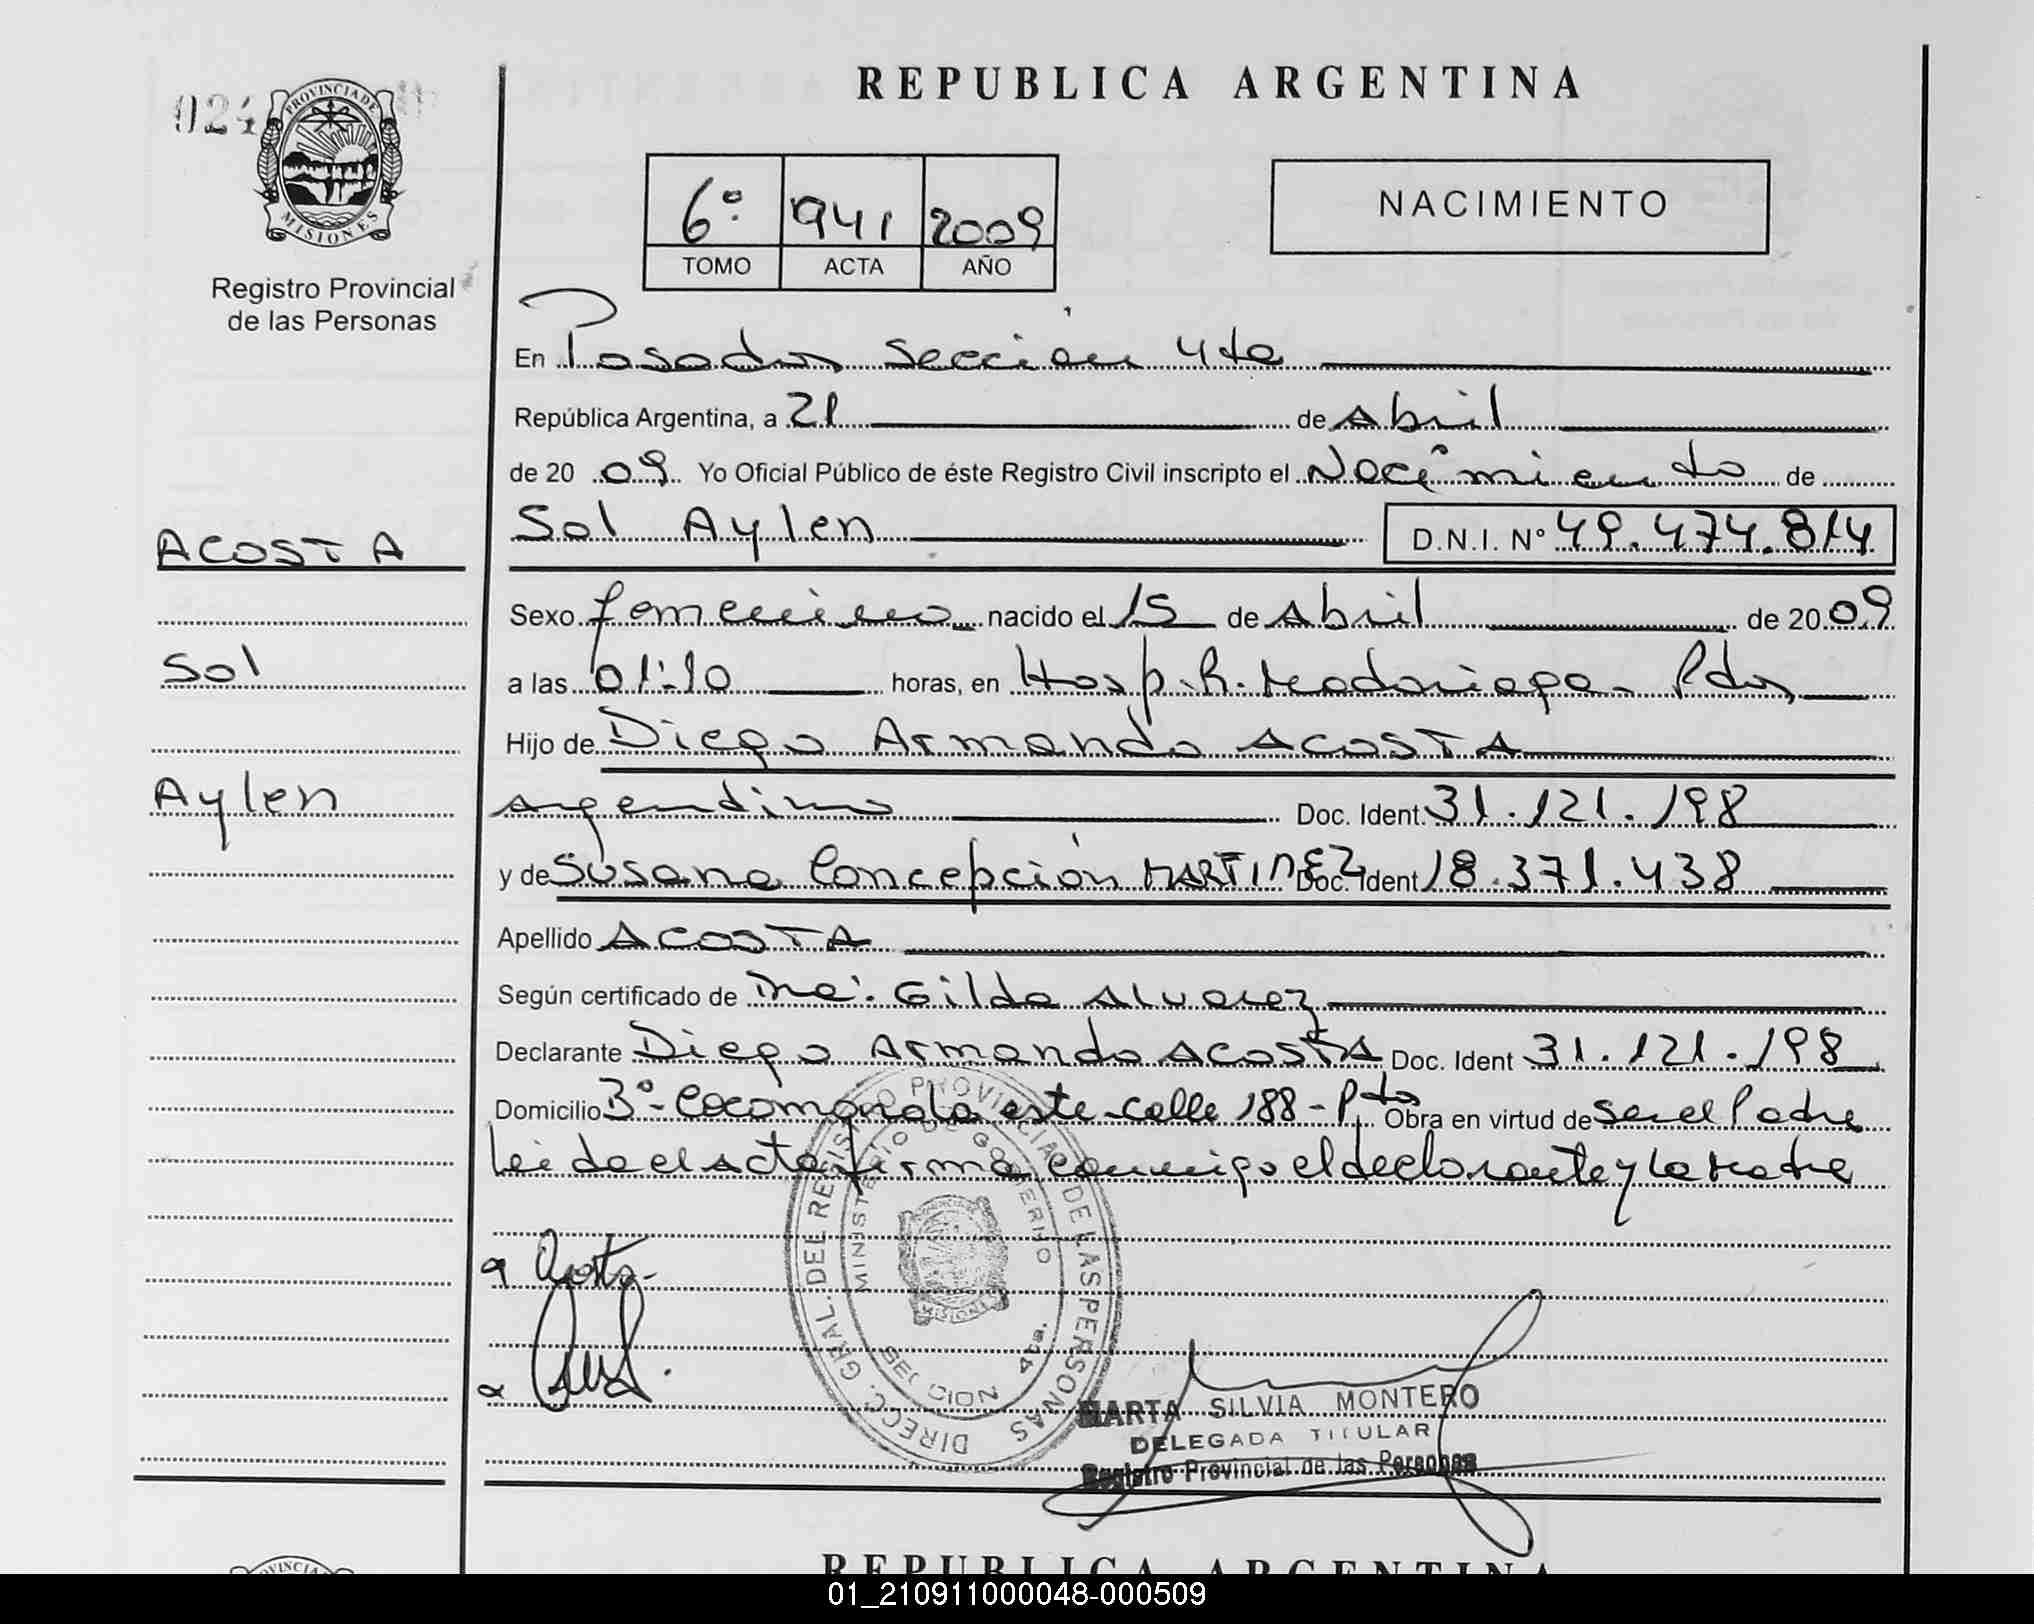 024
PROVINCIA DE
MISIONES
Registro Provincial
de las Personas
REPUBLICA ARGENTINA
6º 941 2009
TOMO ACTA AÑO
NACIMIENTO
En Posadas Sección 4ta
República Argentina, a 21 de Abril
de 20 09 Yo Oficial Público de éste Registro Civil inscripto el Nacimiento de
ACOSTA
Sol Aylen D.N.I. Nº 49.474.814
Sexo femenino nacido el 15 de Abril de 20 09
Sol
a las 01:10 horas, en Hosp. R. Madariaga - Pdas
Hijo de Diego Armando ACOSTA
Aylen
Argentino Doc. Ident. 31.121.198
y de Susana Concepción MARTINEZ Doc. Ident 18.371.438
Apellido ACOSTA
Según certificado de Gilda Alvarez
Declarante Diego Armando ACOSTA Doc. Ident 31.121.198
Domicilio 3º- Cocomarola este-calle 188- Obra en virtud de ser el Padre
Leida el acta firma conmigo el declarante y la Madre
DIRECC. GRAL. DEL REGISTRO PROVINCIAL DE LAS PERSONAS
MINISTERIO DE GOBIERNO
MISIONES
SECCION 4ta.
MARTA SILVIA MONTERO
DELEGADA TITULAR
Registro Provincial de las Personas
PROVINCIA
REPUBLICA ARGENTINA
01_210911000048-000509